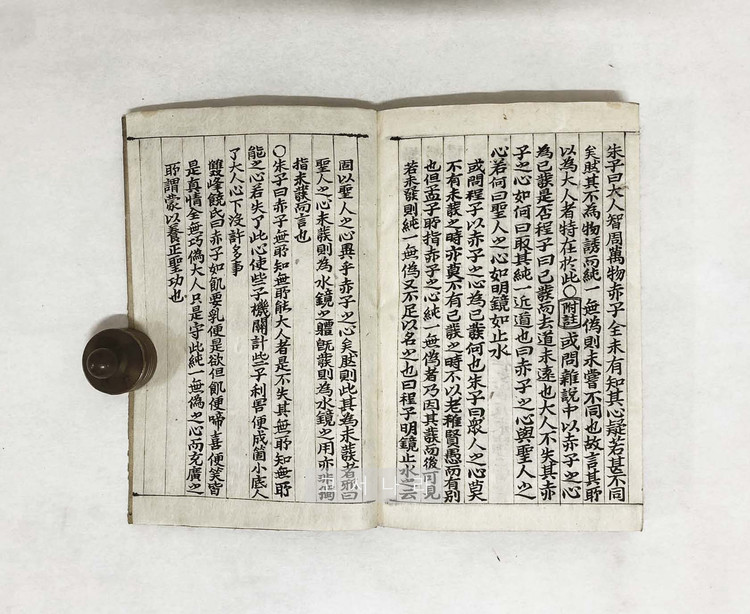 朱子曰大人智周萬物赤子全未有知其心疑若甚不同
矣然其不為物誘而純一無偽則未嘗不同也故言其所
以為大人者特在於此〇附註或問雜說中以赤子之心
為已發是否程子曰已發而去道未遠也大人不失其赤
子之心如何曰取其純一近道也曰赤子之心與聖人之
心若何曰聖人之心如明鏡如止水
或問程子以赤子之心為已發何也朱子曰衆人之心莫
不有未發之時亦莫不有已發之時不以老稚賢愚而有別
也但孟子所指赤子之心純一無偽者乃因其發而後可見
若未發則純一無偽又不足以名之也曰程子明鏡止水之云
固以聖人之心異乎赤子之心矣然則此其為未發者邪曰
聖人之心未發則為水鏡之體旣發則為水鏡之用亦非獨
指未發而言也
〇朱子曰赤子無所知無所能大人者是不失其無所知無所
能之心若失了此心使些子機關計些子利害便成箇小底人
了大人心下沒許多事
雙峰饒氏曰赤子如飢要乳便是欲但飢便啼喜便笑皆
是真情全無巧偽大人只是守此純一無偽之心而充廣之
所謂蒙以養正聖功也